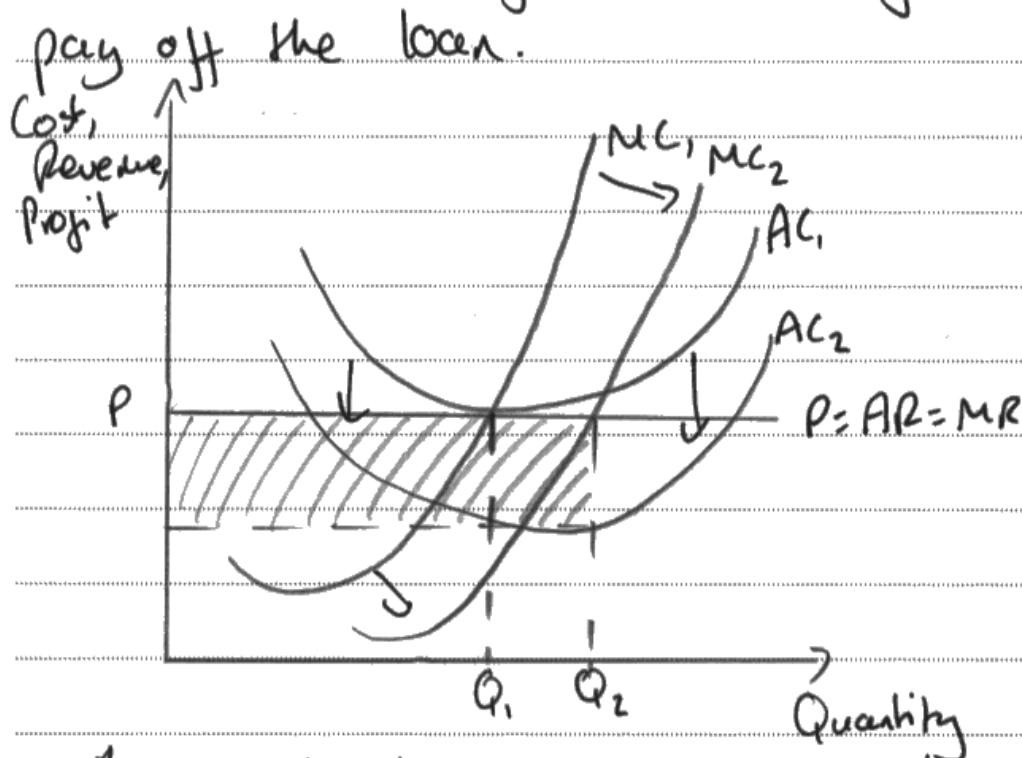 pay off the loan.
Cost,
Revenue,
Profit
MC₁
MC₂
AC₁
AC₂
P
P = AR = MR
Q₁
Q₂
Quantity